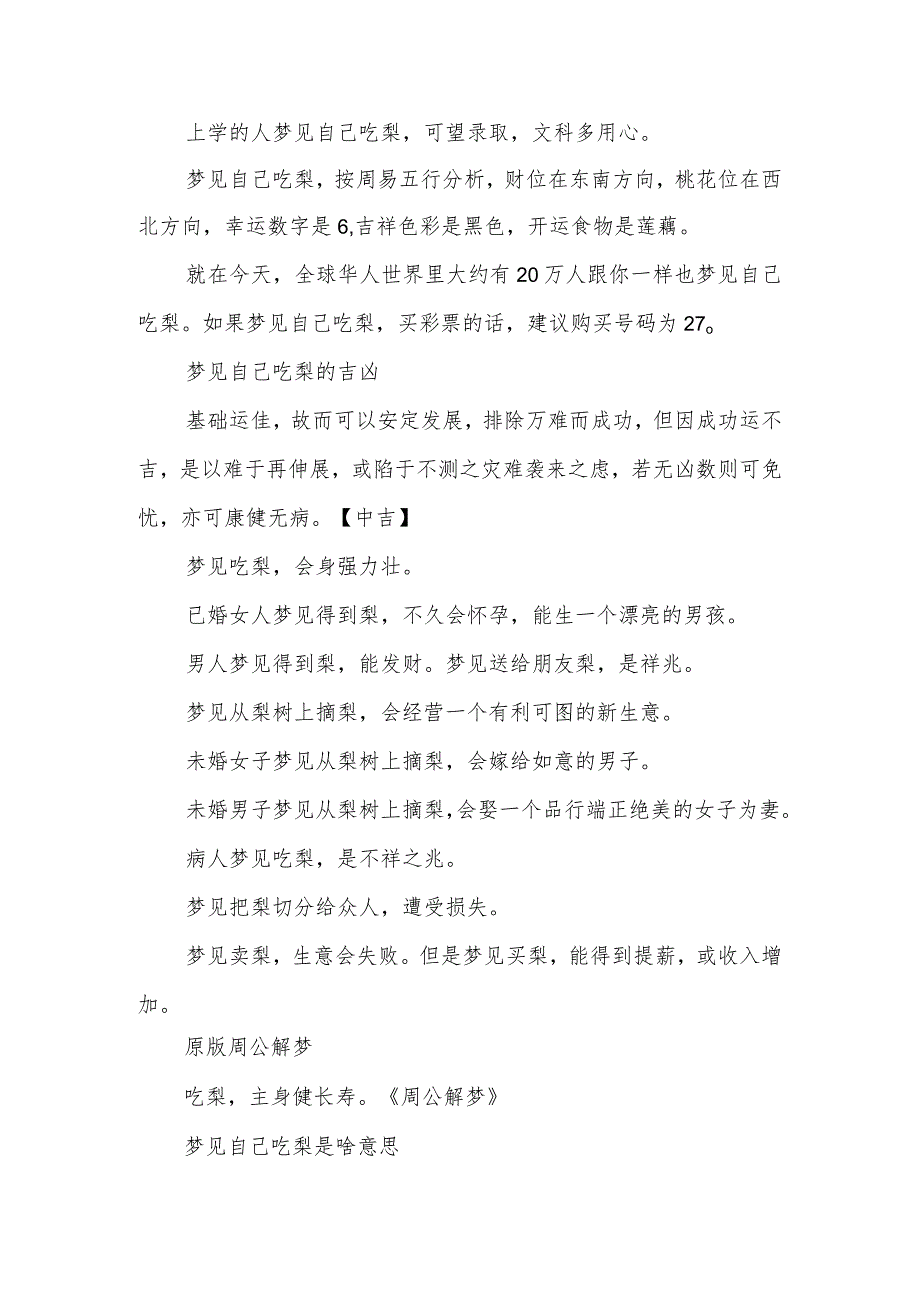 上学的人梦见自己吃梨，可望录取，文科多用心。
梦见自己吃梨，按周易五行分析，财位在东南方向，桃花位在西
北方向，幸运数字是 6,吉祥色彩是黑色，开运食物是莲藕。
就在今天，全球华人世界里大约有 20 万人跟你一样也梦见自己
吃梨。如果梦见自己吃梨，买彩票的话，建议购买号码为 27。
梦见自己吃梨的吉凶
基础运佳，故而可以安定发展，排除万难而成功，但因成功运不
吉，是以难于再伸展，或陷于不测之灾难袭来之虑，若无凶数则可免
忧，亦可康健无病。【中吉】
梦见吃梨，会身强力壮。
已婚女人梦见得到梨，不久会怀孕，能生一个漂亮的男孩。
男人梦见得到梨，能发财。梦见送给朋友梨，是祥兆。
梦见从梨树上摘梨，会经营一个有利可图的新生意。
未婚女子梦见从梨树上摘梨，会嫁给如意的男子。
未婚男子梦见从梨树上摘梨，会娶一个品行端正绝美的女子为妻。
病人梦见吃梨，是不祥之兆。
梦见把梨切分给众人，遭受损失。
梦见卖梨，生意会失败。但是梦见买梨，能得到提薪，或收入增
加。
原版周公解梦
吃梨，主身健长寿。《周公解梦》
梦见自己吃梨是啥意思